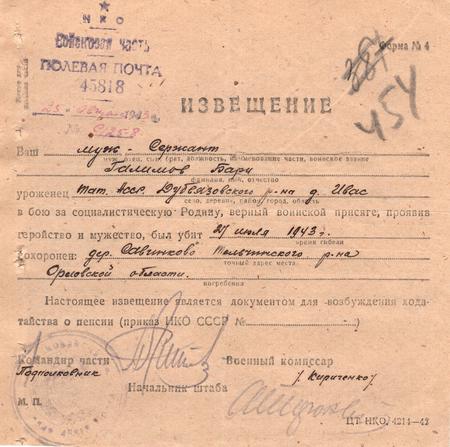 НКО
Войсковая часть
ПОЛЕВАЯ ПОЧТА
45818
Форма № 4
384
454
25 1943 г.
№
ИЗВЕЩЕНИЕ
Ваш муж - Сержант
муж, сын, брат, должность, наименование части, воинское звание
Галимов Бари
фамилия, имя, отчество
уроженец Тат. Асср. Дубъязовского р-на д. Ивас
село, деревня, район, город, область
в бою за социалистическую Родину, верный воинской присяге, проявив
геройство и мужество, был убит 27 июля 1943 г.
время гибели
похоронен: дер. Савинково р-на
точный адрес места
Орловской области.
погребения
Настоящее извещение является документом для возбуждения хода-
тайства о пенсии (приказ НКО СССР №
Командир части
Военный комиссар
Подполковник
/Кириченко/
Начальник штаба
М. П.
ЦТ НКО. 4214-42